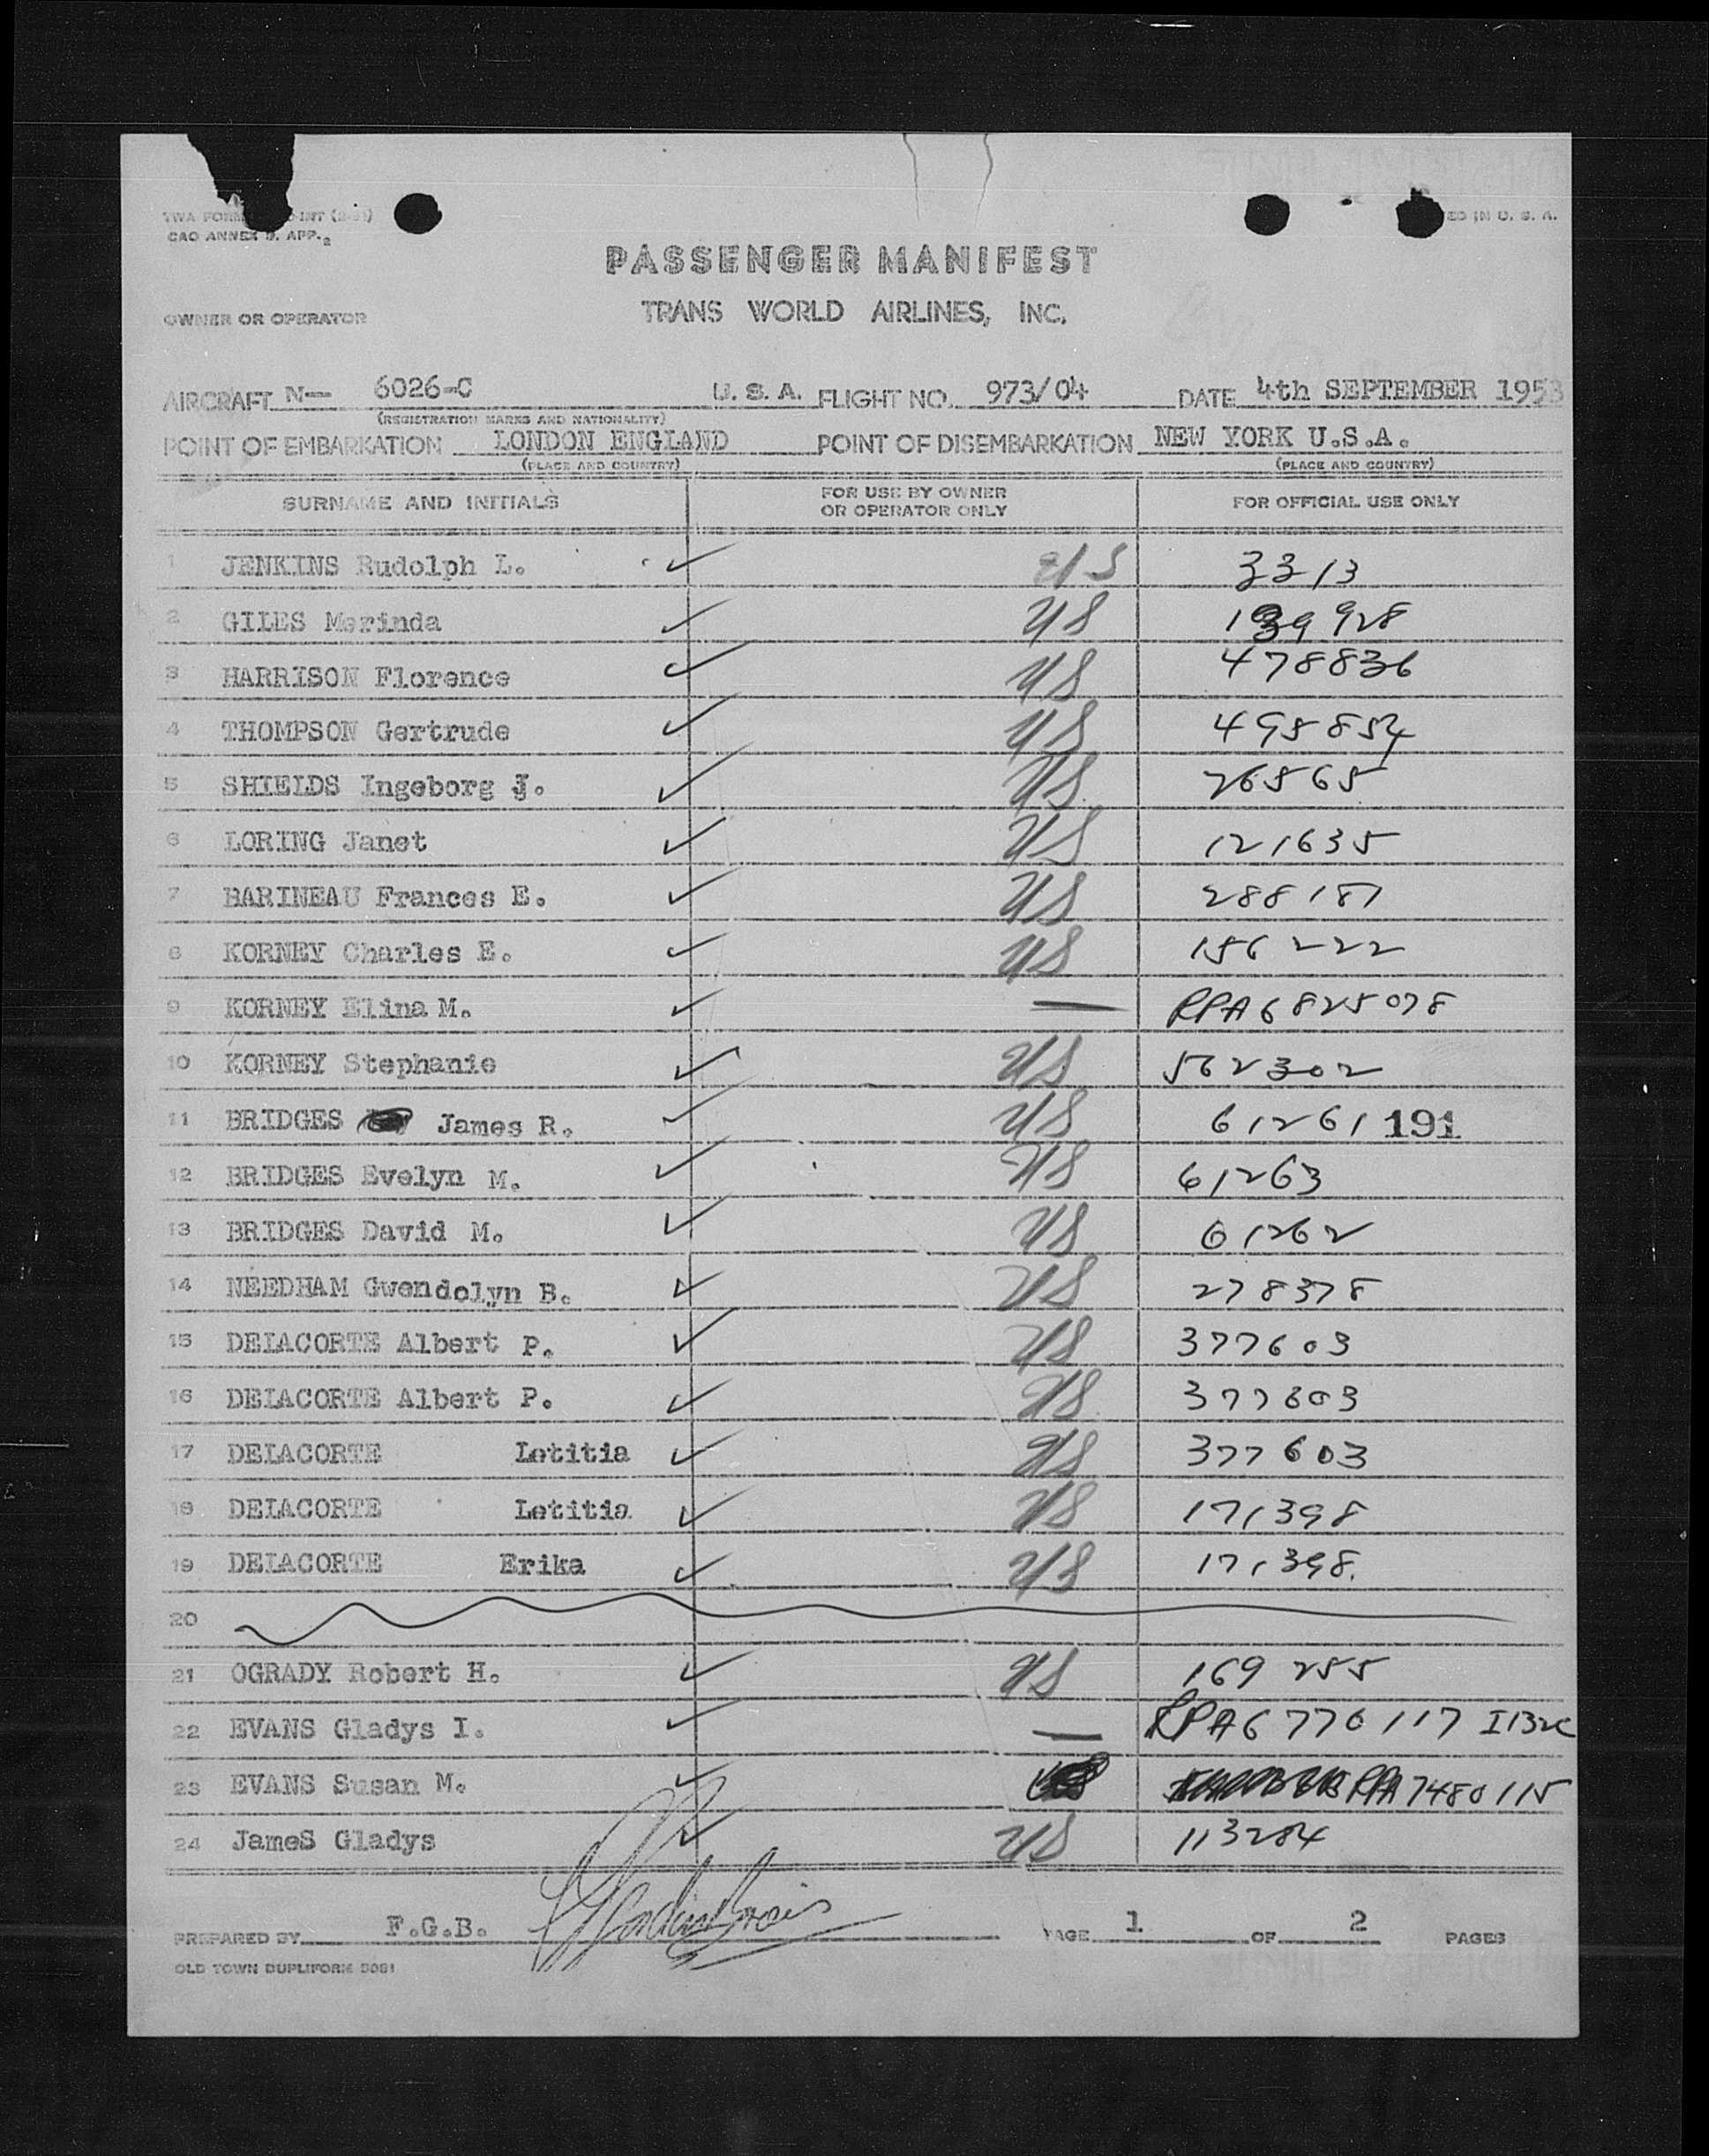 TWA FORM INT
CAO ANNEX 9. APP. 2
ED IN U. S. A.
PASSENGER MANIFEST
OWNER OR OPERATOR TRANS WORLD AIRLINES, INC.
AIRCRAFT N— 6026-C U. S. A. FLIGHT NO. 973/04 DATE 4th SEPTEMBER 1953
(REGISTRATION MARKS AND NATIONALITY)
POINT OF EMBARKATION LONDON ENGLAND POINT OF DISEMBARKATION NEW YORK U.S.A.
(PLACE AND COUNTRY) (PLACE AND COUNTRY)
SURNAME AND INITIALS FOR USE BY OWNER OR OPERATOR ONLY FOR OFFICIAL USE ONLY
1 JENKINS Rudolph L. ✓ US 3313
2 GILES Merinda ✓ US 139928
3 HARRISON Florence ✓ US 478836
4 THOMPSON Gertrude ✓ US 495854
5 SHIELDS Ingeborg J. ✓ US 26565
6 LORING Janet ✓ US 121635
7 BARINEAU Frances E. ✓ US 288181
8 KORNEY Charles E. ✓ US 156222
9 KORNEY Elina M. ✓ — RPA6825078
10 KORNEY Stephanie ✓ US 562302
11 BRIDGES James R. ✓ US 61261 191
12 BRIDGES Evelyn M. ✓ US 61263
13 BRIDGES David M. ✓ US 61262
14 NEEDHAM Gwendolyn B. ✓ US 278378
15 DELACORTE Albert P. ✓ US 377603
16 DELACORTE Albert P. ✓ US 377603
17 DELACORTE Letitia ✓ US 377603
18 DELACORTE Letitia ✓ US 171398
19 DELACORTE Erika ✓ US 171398.
20
21 OGRADY Robert H. ✓ US 169255
22 EVANS Gladys I. ✓ — RPA6 770117 I132c
23 EVANS Susan M. ✓ RPA7480115
24 JameS Gladys ✓ US 113284
PREPARED BY F.G.B. PAGE 1 OF 2 PAGES
OLD TOWN DUPLIFORM 5081